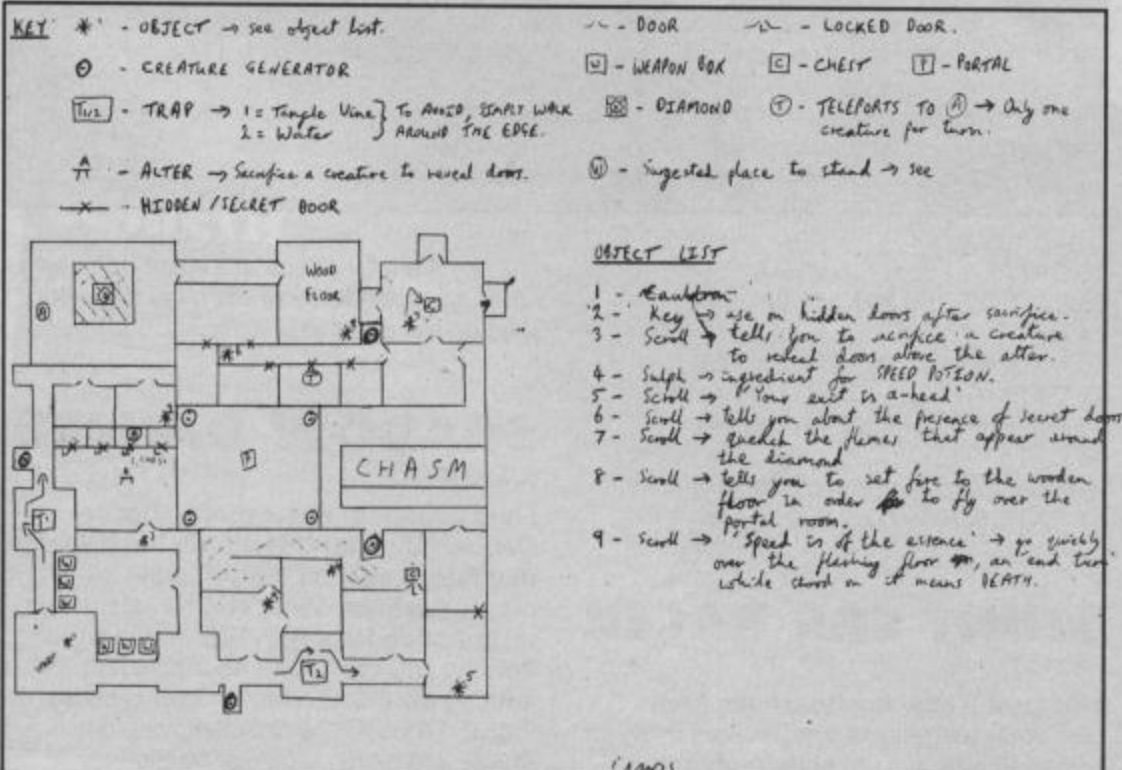 KEY
* - OBJECT → see object list.
- CREATURE GENERATOR
T1/2 - TRAP → 1 = Tangle Vine } TO AVOID, SIMPLY WALK
2 = Water } AROUND THE EDGE.
A - ALTER → Sacrifice a creature to reveal doors.
-x- - HIDDEN / SECRET DOOR
- DOOR
- LOCKED DOOR.
W - WEAPON BOX
C - CHEST
P - PORTAL
- DIAMOND
T - TELEPORTS TO A → Only one
creature per turn.
W - Sugested place to stand → see
WOOD
FLOOR
CHASM
T1
T2
OBJECT LIST
1 - Cauldron
2 - Key → use on hidden doors after sacrifice.
3 - Scroll → tells you to sacrifice a creature
to reveal doors above the alter.
4 - Sulph → ingredient for SPEED POTION.
5 - Scroll → 'Your exit is a-head'
6 - Scroll → tells you about the presence of secret doors
7 - Scroll → quench the flames that appear around
the diamond
8 - Scroll → tells you to set fire to the wooden
floor in order to fly over the
portal room.
9 - Scroll → 'Speed is of the essence' → go quickly
over the flashing floor, an end turn
while stood on it means DEATH.